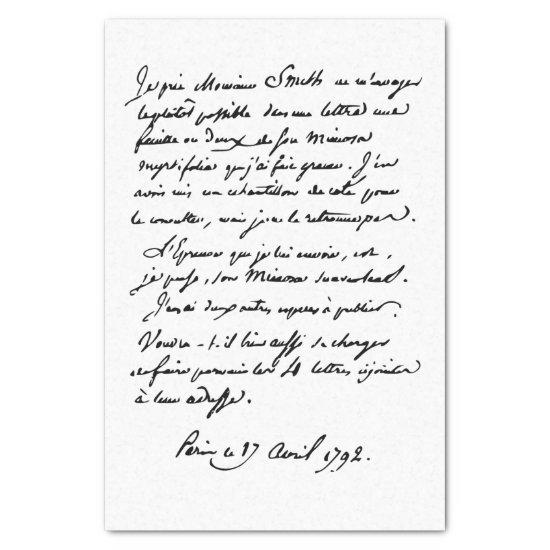 Je prie Monsieur Smith de m'envoyer
le plutôt possible dans une lettre une
feuille ou deux de son Mimosa
myrtifolia que j'ai fait graver. J'en
avois mis un echantillon de coté pour
le consulter, mais je ne le retrouve pas.
L'Epreuve que je lui envoie, est,
je pense, son Mimosa suaveolens.
J'en ai deux autres especes à publier.
Voudra-t-il bien aussi se charger
de faire parvenir les lettres cijointes
à leur adresse.
Paris le 17 Avril 1792.